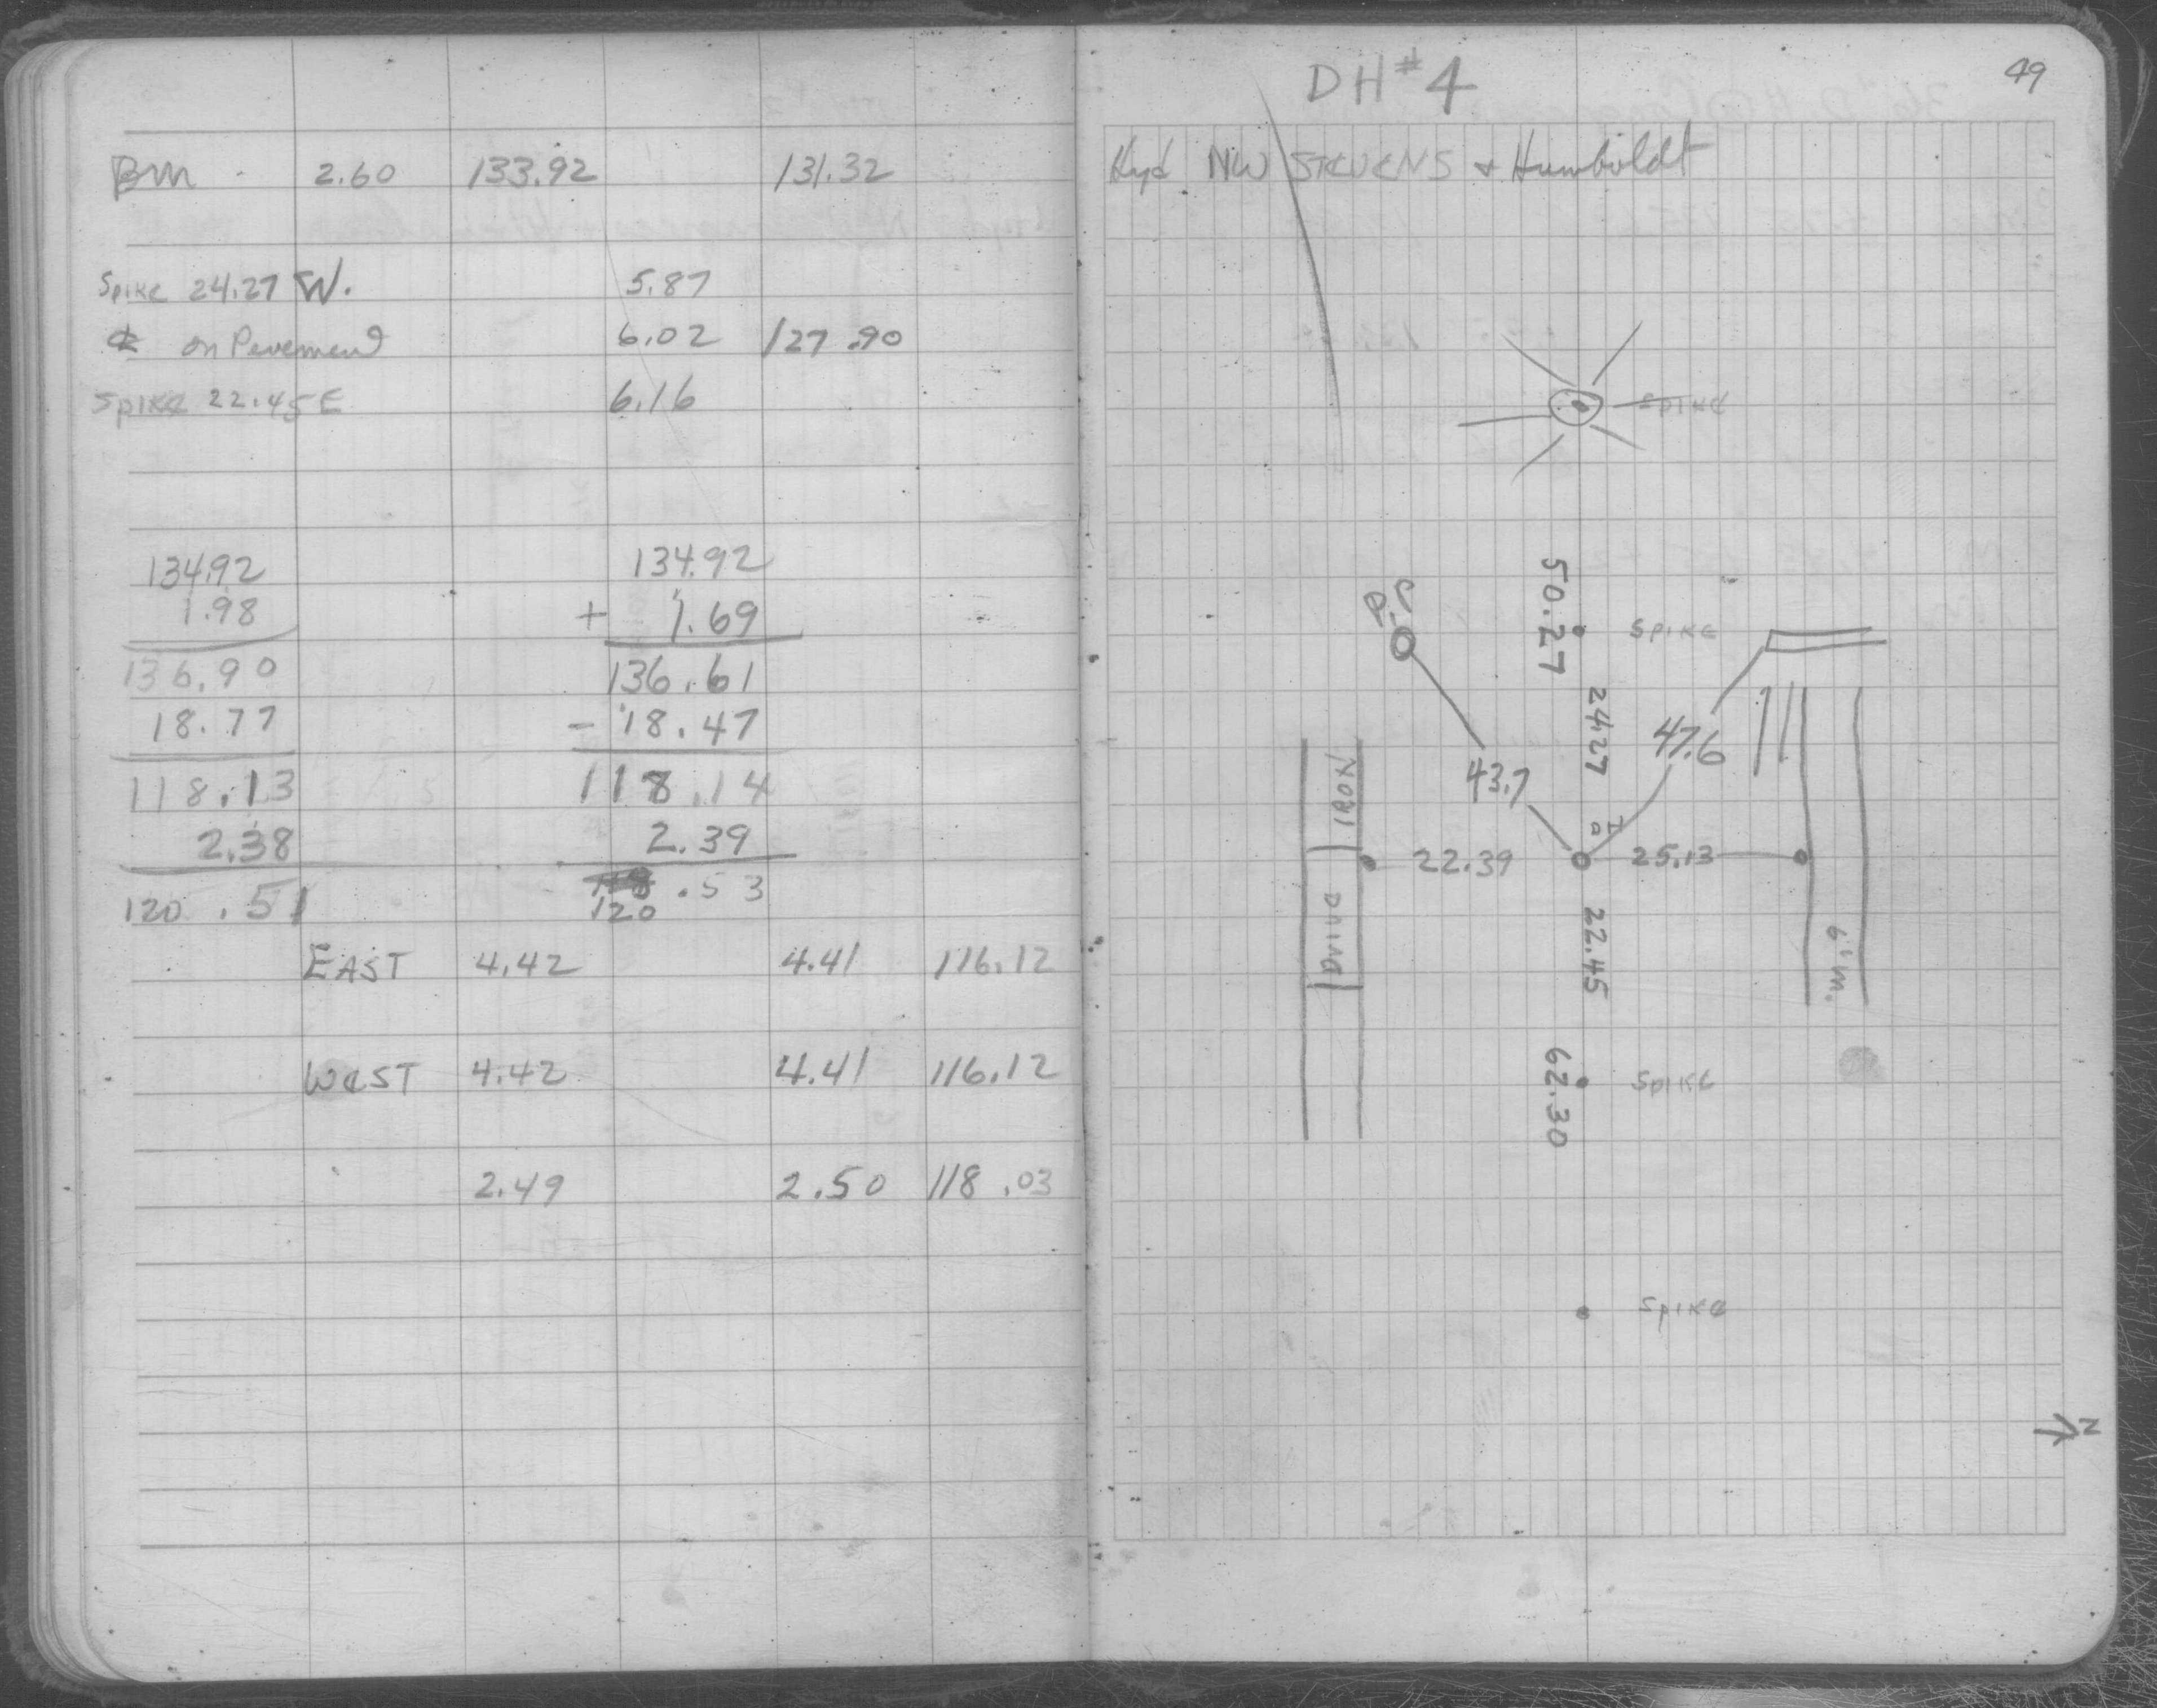 BM 2.60 133.92 131.32
Spike 24.27 W. 5.87
℄ on Pavement 6.02 127.90
Spike 22.45 E 6.16
134.92 134.92
1.98 + 1.69
136.90 136.61
18.77 - 18.47
118.13 118.14
2.38 2.39
120.51 120.53
EAST 4.42 4.41 116.12
WEST 4.42 4.41 116.12
2.49 2.50 118.03
DH #4
49
Hyd NW STEVENS + Humboldt
Spike
50.27
Spike
P.P.
24.27
47.6
43.7
IRON
22.39
25.13
DRIVE
22.45
6" M.
62.30
Spike
Spike
Z